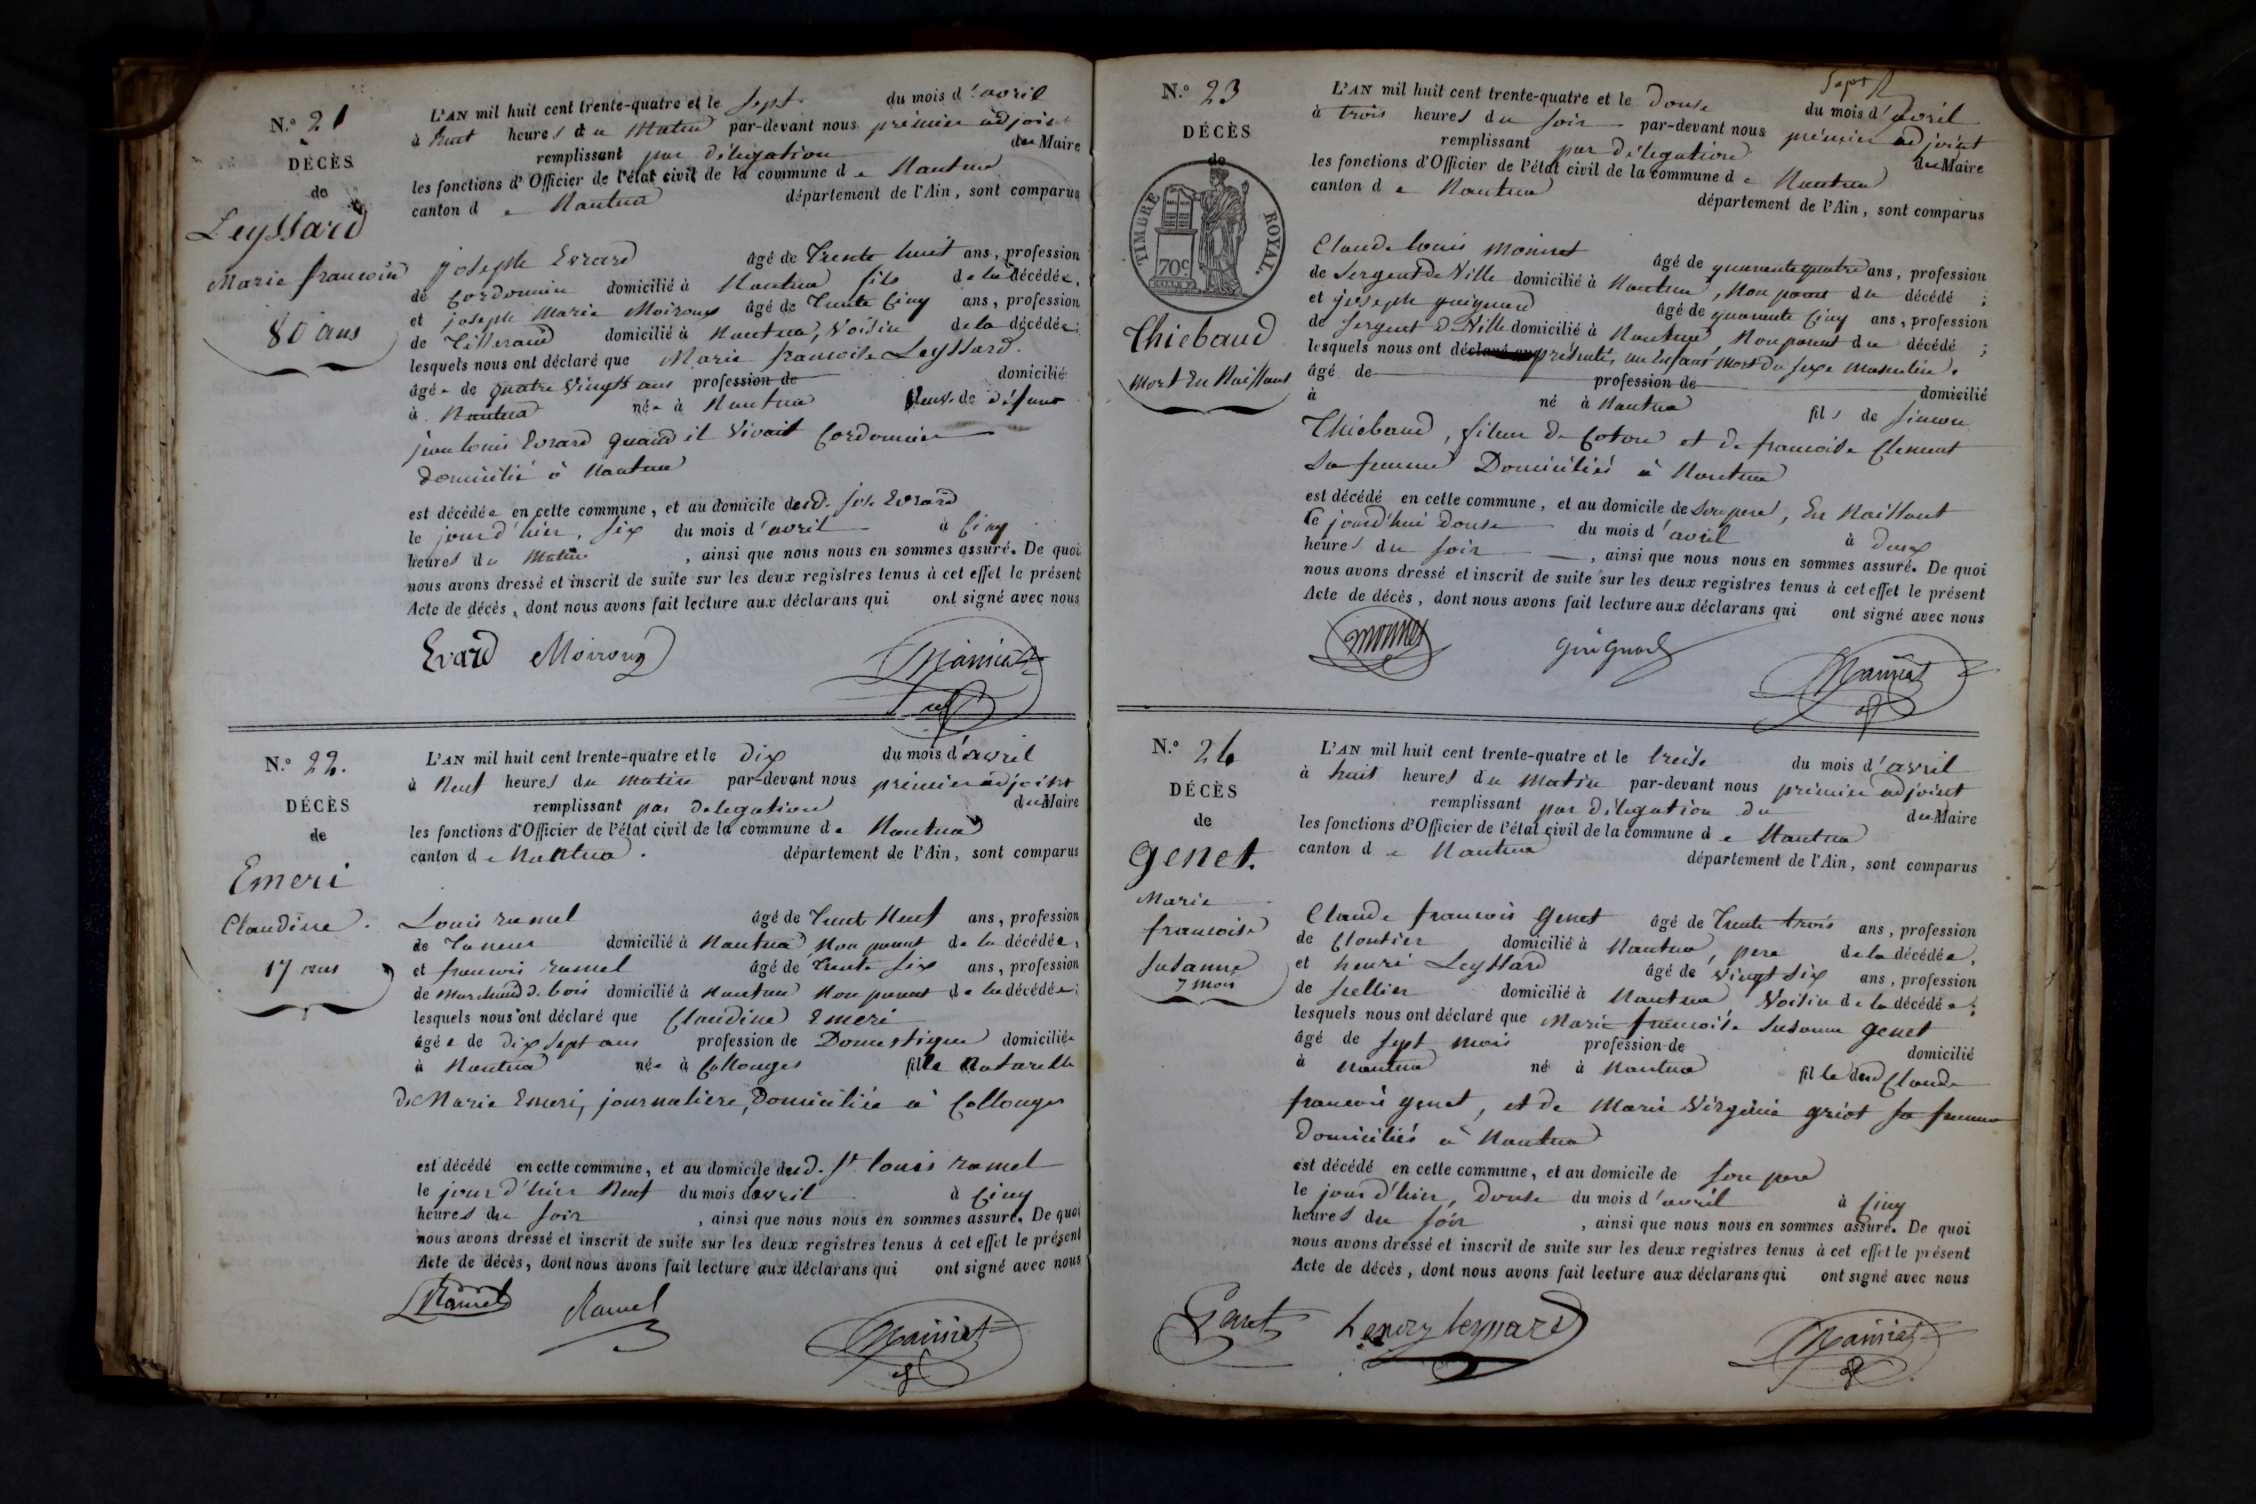 N.° 21
DÉCÈS
de
Leyssard
Marie francoise
80 ans
L'AN mil huit cent trente-quatre et le Sept du mois d'avril
à huit heures du Matin par-devant nous prémier adjoint
remplissant par délegation du Maire
les fonctions d'Officier de l'état civil de la commune de Nantua
canton de Nantua département de l'Ain, sont comparus
joseph Evrard âgé de Trente huit ans, profession
de Cordonnier domicilié à Nantua fils de la décédée,
et joseph Marie Moiroux âgé de Trente Cinq ans, profession
de Tisserand domicilié à Nantua, Voisin de la décédée;
lesquels nous ont déclaré que Marie francoise Leyssard.
âgée de quatre Vingts ans profession de domicilié
à Nantua née à Nantua Veuve de défunt
jean louis Evrard quand il Vivait Cordonnier
domicilié à Nantua
est décédée en cette commune, et au domicile dud. jos. Evrard
le jour d'hier, Six du mois d'avril à Cinq
heures du Matin, ainsi que nous nous en sommes assuré. De quoi
nous avons dressé et inscrit de suite sur les deux registres tenus à cet effet le présent
Acte de décès, dont nous avons fait lecture aux déclarans qui ont signé avec nous
Evard Moiroux
N.° 22.
DÉCÈS
de
Emeri
Claudine.
17 ans
L'AN mil huit cent trente-quatre et le dix du mois d'avril
à Neuf heures du matin par-devant nous prémier adjoint
remplissant par delegation du Maire
les fonctions d'Officier de l'état civil de la commune de Nantua
canton de Nantua. département de l'Ain, sont comparus
Louis ramel âgé de Trente Neuf ans, profession
de Taneur domicilié à Nantua Non parent de la décédée,
et francois ramel âgé de Trente Six ans, profession
de Marchand de bois domicilié à Nantua Non parent de la décédée;
lesquels nous ont déclaré que Claudine Emeri
âgée de dix Sept ans profession de Domestique domiciliée
à Nantua née à Collonges fille Naturelle
de Marie Emeri, journaliere, Domiciliée à Collonges
est décédé en cette commune, et au domicile dud. Sr. louis ramel
le jour d'hier Neuf du mois davril à Cinq
heures du Soir, ainsi que nous nous en sommes assuré. De quoi
nous avons dressé et inscrit de suite sur les deux registres tenus à cet effet le présent
Acte de décès, dont nous avons fait lecture aux déclarans qui ont signé avec nous
Ramel Ramel
N.° 23
DÉCÈS
de
TIMBRE ROYAL.
70c
Thiebaud
Mort En Naissant
L'AN mil huit cent trente-quatre et le douse du mois d'avril
à trois heures du Soir par-devant nous prémier adjoint
remplissant par délegation du Maire
les fonctions d'Officier de l'état civil de la commune de Nantua
canton de Nantua département de l'Ain, sont comparus
Claude louis monnet âgé de quarante quatre ans, profession
de Sergent de Ville domicilié à Nantua, Non parent du décédé;
et joseph guignard âgé de quarante Cinq ans, profession
de Sergent de Ville domicilié à Nantua, Non parent du décédé;
lesquels nous ont présenté, un Enfant Mort du sexe masculin.
âgé de profession de domicilié
à né à Nantua fils de Simon
Thiebaud, fileur de Coton et de francoise Clement
Sa femme Domiciliés à Nantua
est décédé en cette commune, et au domicile de Son pere, En Naissant
le jourd'hui douse du mois d'avril à deux
heures du Soir, ainsi que nous nous en sommes assuré. De quoi
nous avons dressé et inscrit de suite sur les deux registres tenus à cet effet le présent
Acte de décès, dont nous avons fait lecture aux déclarans qui ont signé avec nous
monnet guignard
N.° 24
DÉCÈS
de
Genet.
Marie
francoise
Susanne
7 mois
L'AN mil huit cent trente-quatre et le treise du mois d'avril
à huit heures du Matin par-devant nous prémier adjoint
remplissant par délegation du du Maire
les fonctions d'Officier de l'état civil de la commune de Nantua
canton de Nantua département de l'Ain, sont comparus
Claude francois Genet âgé de Trente trois ans, profession
de Cloutier domicilié à Nantua, pere de la décédée,
et henri Leyssard âgé de Vingt Six ans, profession
de Sellier domicilié à Nantua Voisin de la décédée;
lesquels nous ont déclaré que Marie francoise Susanne genet
âgé de Sept mois profession de domicilié
à Nantua né à Nantua fille dud Claude
francois genet, et de Marie Virginie griot Sa femme
Domiciliés à Nantua
est décédé en cette commune, et au domicile de Son pere
le jour d'hier, douse du mois d'avril à Cinq
heures du Soir, ainsi que nous nous en sommes assuré. De quoi
nous avons dressé et inscrit de suite sur les deux registres tenus à cet effet le présent
Acte de décès, dont nous avons fait lecture aux déclarans qui ont signé avec nous
Genet henry leyssard